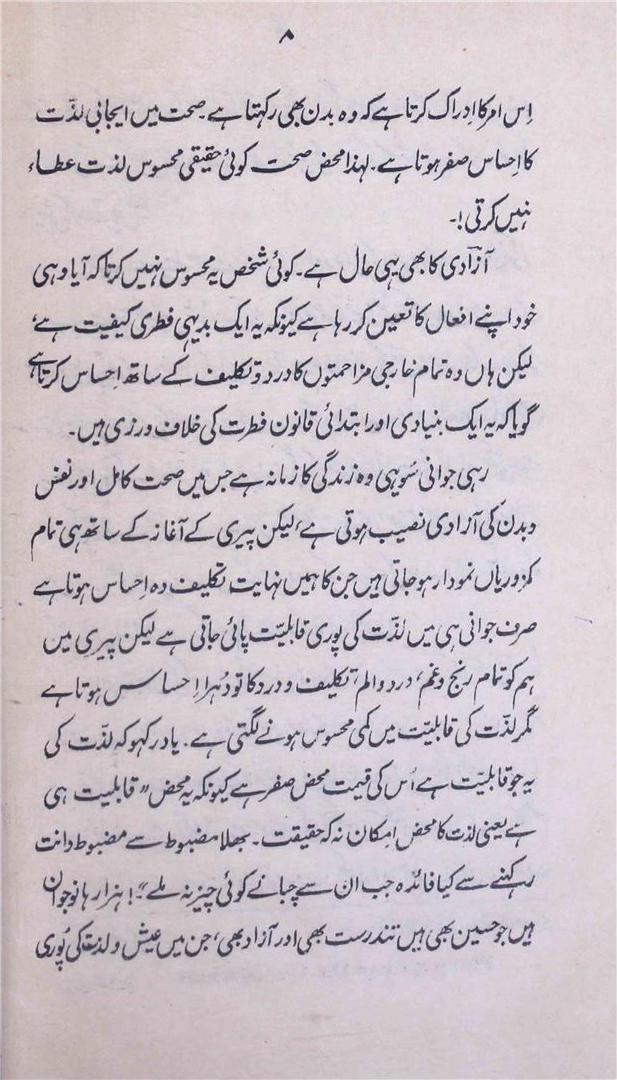 ۸
اِس امر کا اِدراک کرتا ہے کہ وہ بدن بھی رکھتا ہے۔ صحت میں ایجابی لذّت
کا اِحساس صفر ہوتا ہے۔ لہذا محض صحت کوئی حقیقی محسوس لذت عطاء
نہیں کرتی!۔
آزادی کا بھی یہی حال ہے۔ کوئی شخص یہ محسوس نہیں کرتا کہ آیا وہی
خود اپنے افعال کا تعین کر رہا ہے کیونکہ یہ ایک بدیہی فطری کیفیت ہے،
لیکن ہاں وہ تمام خارجی مزاحمتوں کا درد و تکلیف کے ساتھ اِحساس کرتا ہے
گویا کہ یہ ایک بنیادی اور ابتدائی قانون فطرت کی خلاف ورزی ہیں۔
رہی جوانی سو یہی وہ زندگی کا زمانہ ہے جس میں صحت کامل اور نفس
و بدن کی آزادی نصیب ہوتی ہے، لیکن پیری کے آغاز کے ساتھ ہی تمام
کمزوریاں نمودار ہو جاتی ہیں جن کا ہمیں نہایت تکلیف دہ اِحساس ہوتا ہے
صرف جوانی ہی میں لذّت کی پوری قابلیّت پائی جاتی ہے لیکن پیری میں
ہم کو تمام رنج و غم، درد و الم، تکلیف و درد کا تو دُہرا اِحساس ہوتا ہے
مگر لذّت کی قابلیّت میں کمی محسوس ہونے لگتی ہے۔ یاد رکہو کہ لذّت کی
یہ جو قابلیّت ہے اُس کی قیمت محض صفر ہے کیونکہ یہ محض "قابلیت ہی
ہے یعنی لذت کا محض اِمکان نہ کہ حقیقت۔ بھلا مضبوط سے مضبوط دانت
رکہنے سے کیا فائدہ جب ان سے چبانے کوئی چیز نہ ملے"! ہزار ہا نوجوان
ہیں جو حسین بھی ہیں تندرست بھی اور آزاد بھی، جن میں عیش و لذت کی پُوری